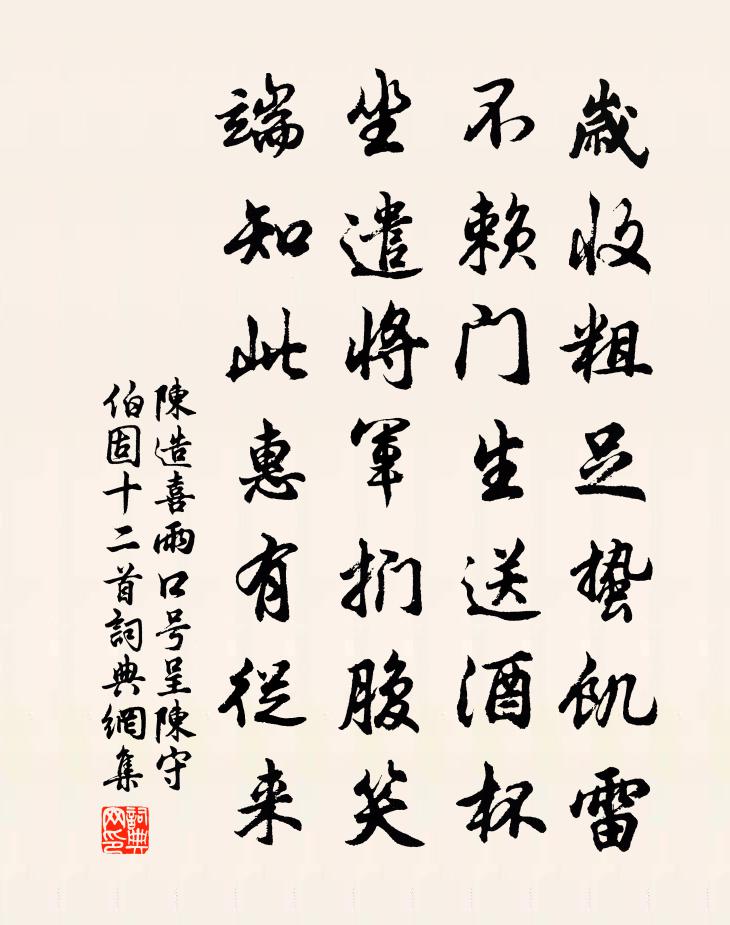 歲收粗足蛰飢雷
不赖门生送酒杯
坐遣將軍捫腹笑
端知此惠有從来
陳造喜雨口号呈陳守
伯固十二首詞典網集
詞典網印